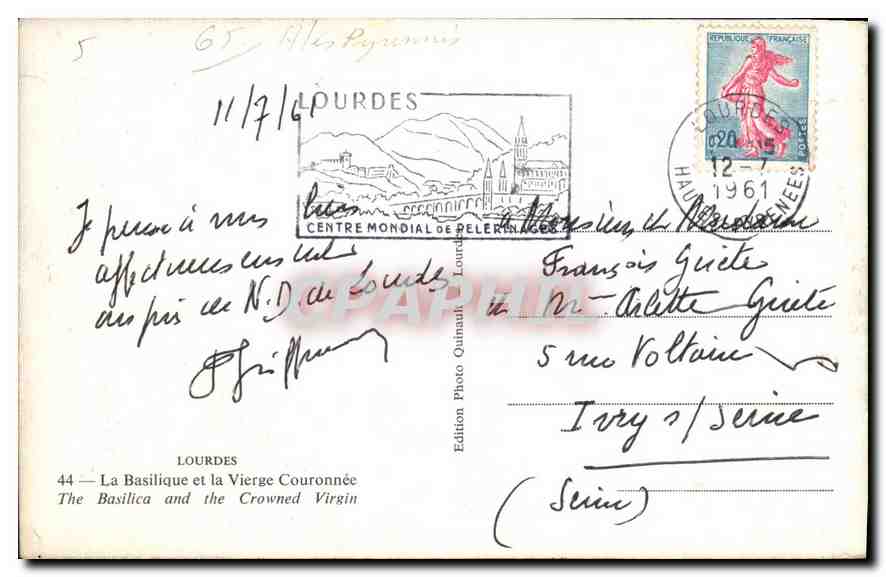 5
65
REPUBLIQUE FRANÇAISE
0,20
POSTES
11/7/61
LOURDES
CENTRE MONDIAL DE PELERINAGES
LOURDES
12-7
1961
Je pense à vous bien
affectueusement
auprès de N.D. de Lourdes
Monsieur
François
et Mme Arlette
5 rue Voltaire
Ivry s/ Seine
(Seine)
Edition Photo Quinault, Lourdes
CPAPHIL
LOURDES
44 — La Basilique et la Vierge Couronnée
The Basilica and the Crowned Virgin